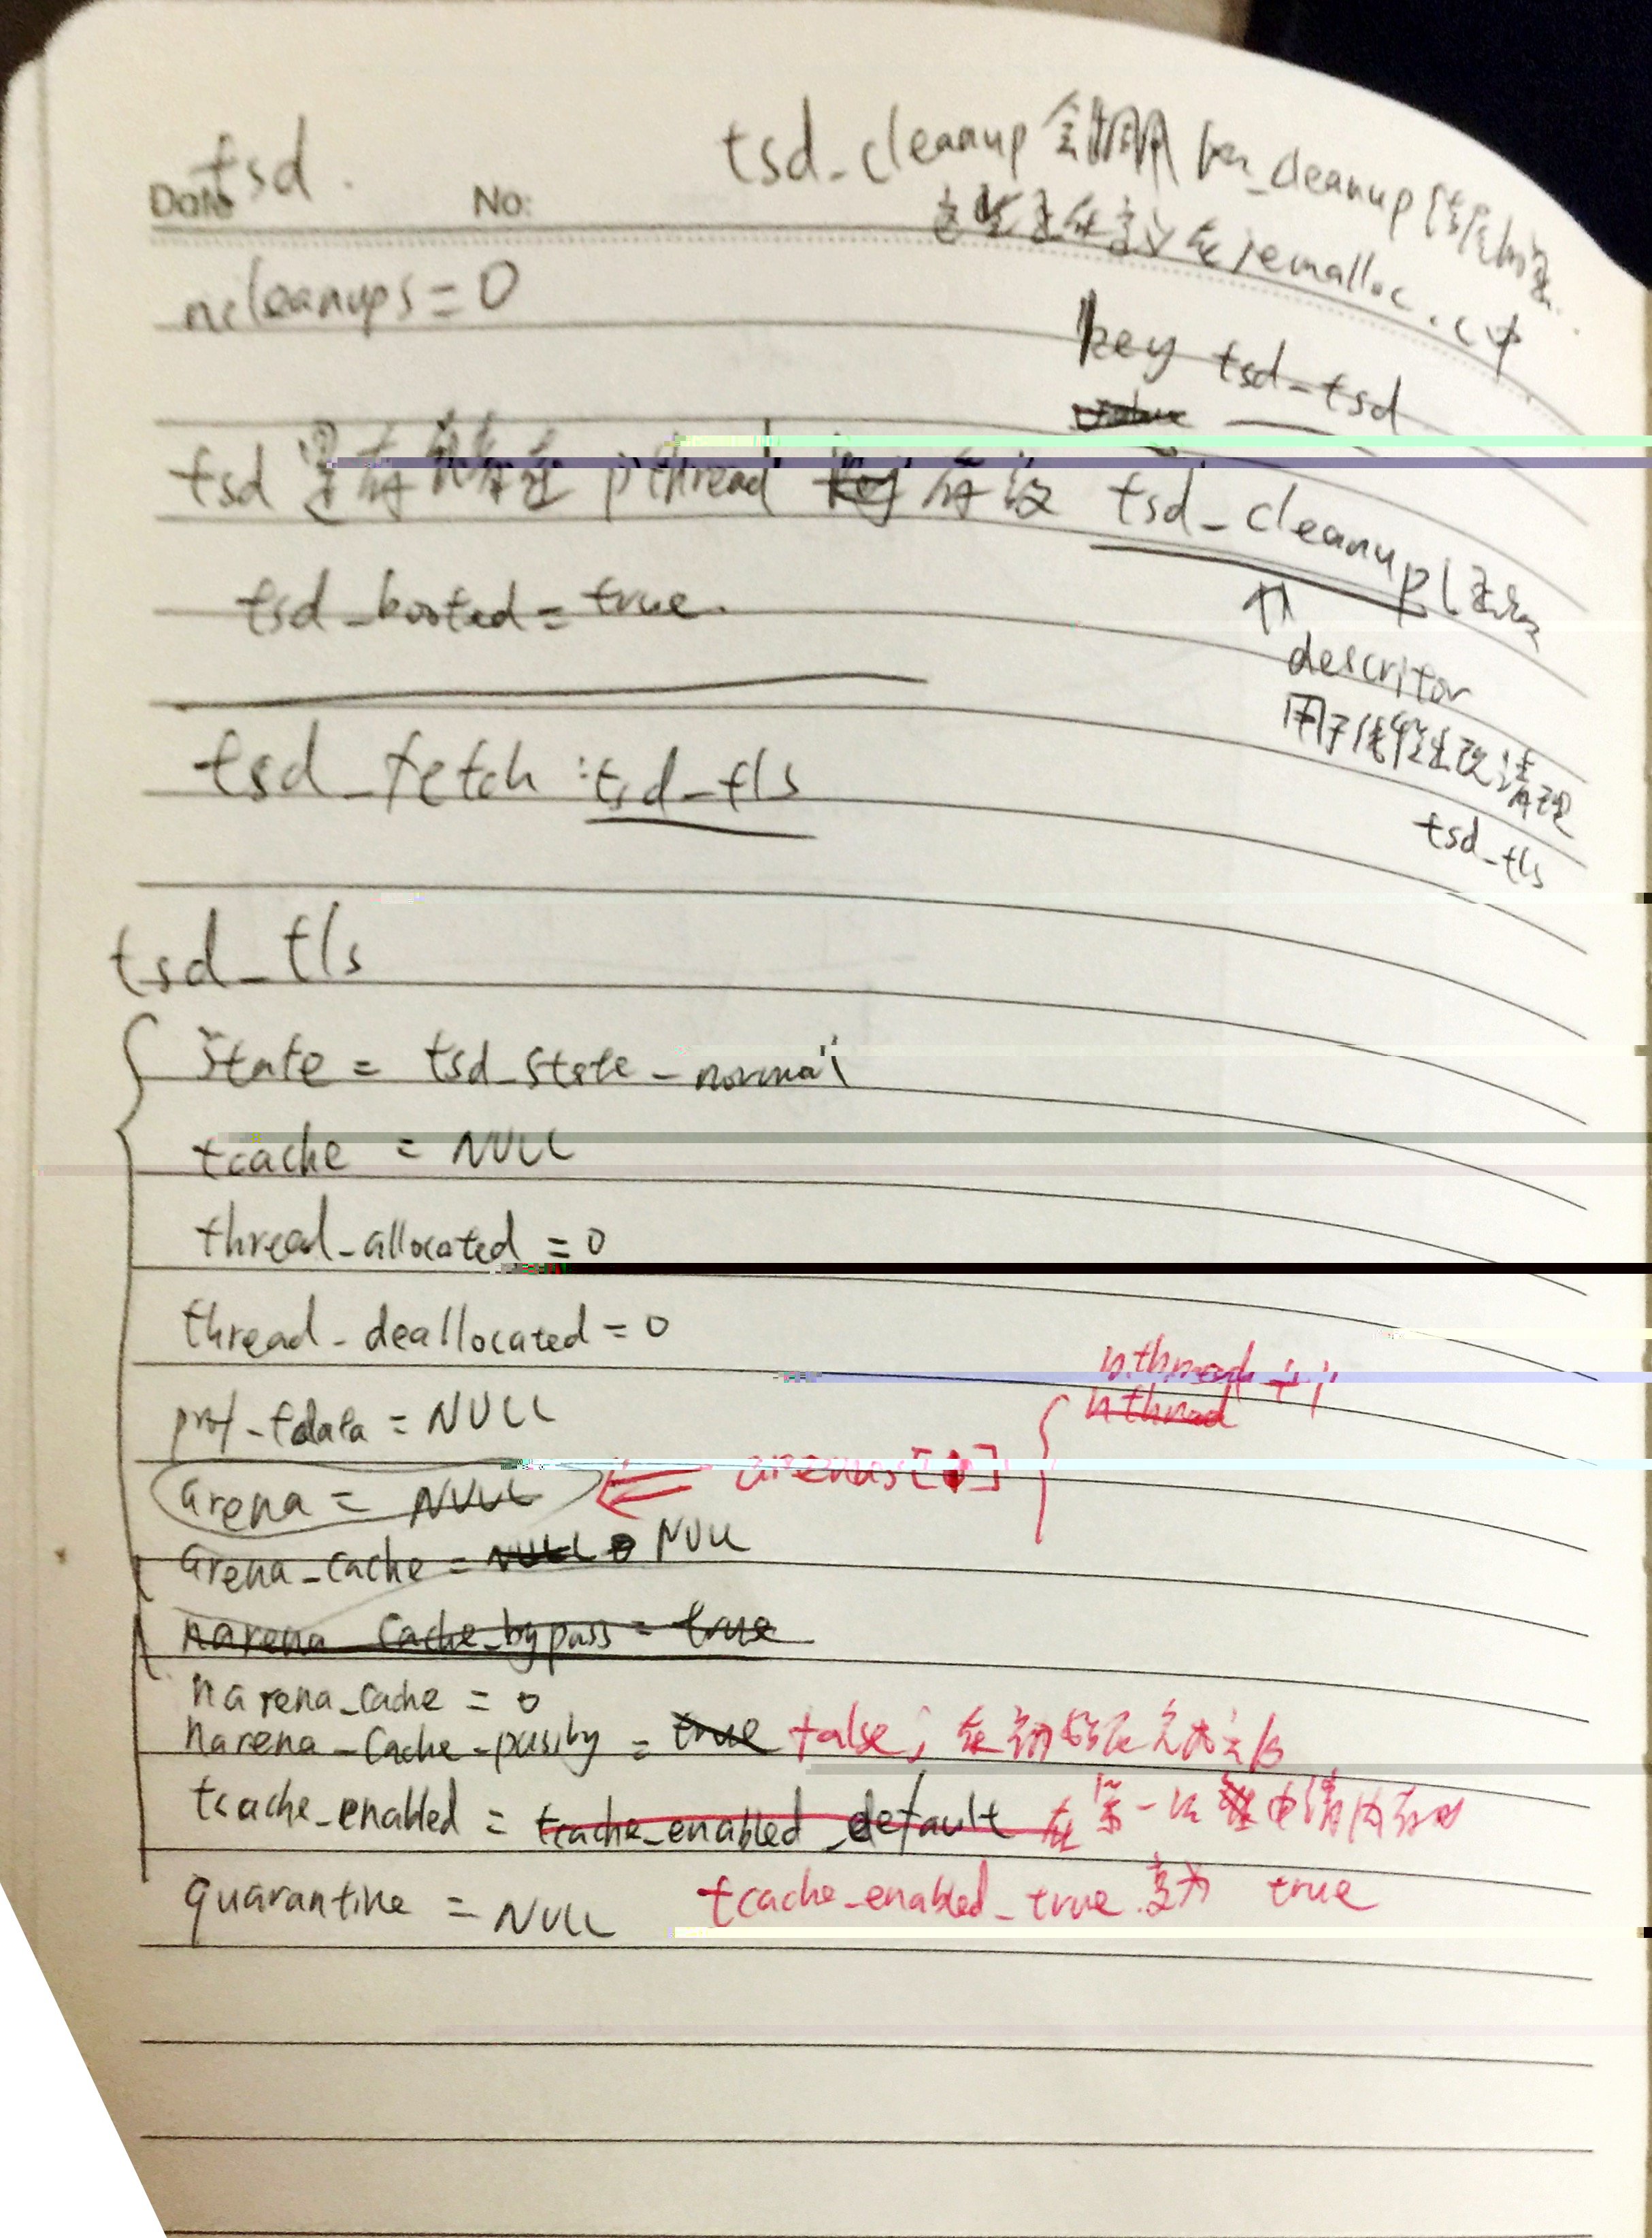 tsd.
Date No:
tsd_cleanup 会调用 _cleanup
定义在jemalloc.c中
ncleanups=0
key tsd_tsd
tsd pthread key tsd_cleanup(
tsd_booted = true.
descritor
用于线程 清理
tsd_tls
tsd_fetch : tsd_tls
tsd_tls
state = tsd_state_normal
tcache = NULL
thread_allocated = 0
thread_deallocated = 0
nthread ++;
nthread
prof_tdata = NULL
arena = NULL arenas[ ]
arena_cache = NULL 0 NULL
narena_cache_bypass = true
narena_cache = 0
narena_cache_passby = true false; 在初始化
tcache_enabled = tcache_enabled_default 在第一次 申请内存时
quarantine = NULL tcache_enabled_true 变为 true